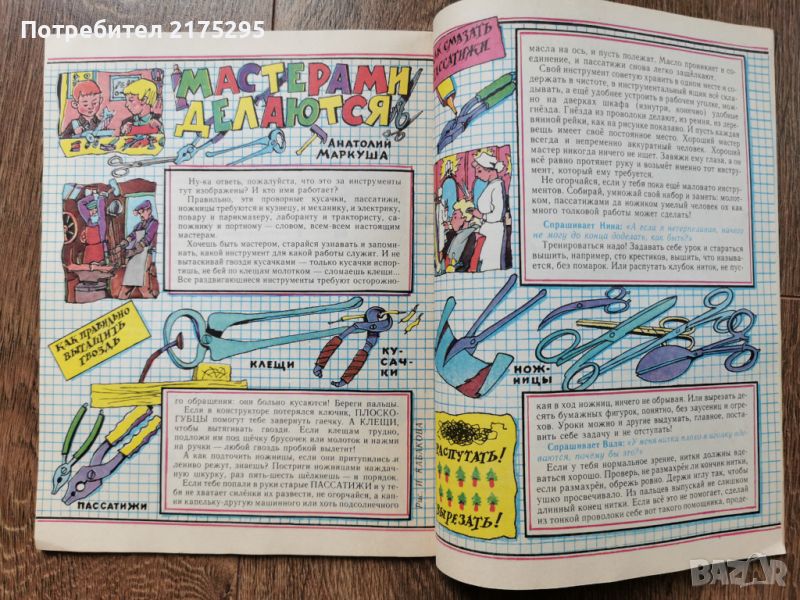 Потребител 2175295
МАСТЕРАМИ
ДЕЛАЮТСЯ
АНАТОЛИЙ
МАРКУША
Ну-ка ответь, пожалуйста, что это за инструменты
тут изображены? И кто ими работает?
Правильно, эти проворные кусачки, пассатижи,
ножницы требуются и кузнецу, и механику, и электрику,
повару и парикмахеру, лаборанту и трактористу, са-
пожнику и портному — словом, всем-всем настоящим
мастерам.
Хочешь быть мастером, старайся узнавать и запоми-
нать, какой инструмент для какой работы служит. И не
вытаскивай гвозди кусачками — только кусачки испор-
тишь, не бей по клещам молотком — сломаешь клещи...
Все раздвигающиеся инструменты требуют осторожно-
КАК ПРАВИЛЬНО
ВЫТАЩИТЬ
ГВОЗДЬ
КЛЕЩИ
КУ-
САЧ-
КИ
го обращения: они больно кусаются! Береги пальцы.
Если в конструкторе потерялся ключик, ПЛОСКО-
ГУБЦЫ помогут тебе завернуть гаечку. А КЛЕЩИ,
чтобы вытягивать гвозди. Если клещам трудно,
подложи им под щёчку брусочек или молоток и нажми
на ручки — любой гвоздь пробкой вылетит!
А как подточить ножницы, если они притупились и
лению режут, знаешь? Постриги ножницами наждач-
ную шкурку, раз пять-шесть щёлкнем — и порядок.
Если тебе попали в руки старые ПАССАТИЖИ и у те-
бя не хватает силёнки их развести, не огорчайся, а капни
капельку-другую машинного или хоть подсолнечного
ПАССАТИЖИ
Рис. И. КАБАКОВА
КАК СМАЗАТЬ
ПАССАТИЖИ.
масла на ось, и пусть полежат. Масло проникнет в со-
единение, и пассатижи снова легко защёлкают.
Свой инструмент советую хранить в одном месте и со-
держать в чистоте, в инструментальный ящик всё склад-
вать, а ещё удобнее устроить в рабочем уголке, мож-
но на дверках шкафа (изнутри, конечно) удобные
гнёзда. Гнёзда из проволоки делают, из ремня, из дере-
вянной рейки, как на рисунке показано. И пусть каждая
вещь имеет своё постоянное место. Хороший мастер
всегда и непременно аккуратный человек. Хороший
мастер никогда ничего не ищет. Завяжи ему глаза, а он
всё равно протянет руку и возьмёт именно тот инстру-
мент, который ему требуется.
Не огорчайся, если у тебя пока ещё маловато инстру-
ментов. Собирай, умножай свой набор и заметь: молот-
ком, пассатижами да ножиком умелый человек ох как
много толковой работы может сделать!
Спрашивает Нина: «А если я нетерпеливая, ничего
не могу до конца доделать, как быть?»
Тренироваться надо! Задавать себе урок и стараться
вышить, например, сто крестиков, вышить, что называ-
ется, без помарок. Или распутать клубок ниток, не пус-
НОЖ-
НИЦЫ
РАСПУТАТЬ!
ВЫРЕЗАТЬ!
кая в ход ножниц, ничего не обрывая. Или вырезать де-
сять бумажных фигурок, понятно, без заусениц и огре-
хов. Уроки можно и другие выдумать, главное, поста-
вить себе задачу и не отступать!
Спрашивает Валя: «У меня нитка плохо в иголку вде-
ваются, почему бы это?»
Если у тебя нормальное зрение, нитки должны
вдеваться хорошо. Проверь, не размахрён ли кончик нитки,
если размахрён, обрежь ровно. Держи иглу так, чтобы
ушко просвечивало. Из пальцев выпускай не слишком
длинный конец нитки. Если всё это не помогает, сделай
из тонкой проволоки себе вот такого помощника, проде-
BAZAR